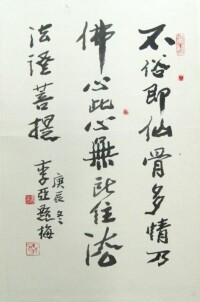 不俗即仙骨多情乃
佛心此心無所住法
法證菩提
庚辰冬
李亞梅